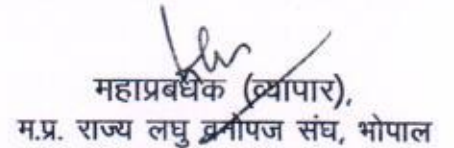 महाप्रबंधक (व्यापार),
म.प्र. राज्य लघु वनोपज संघ, भोपाल